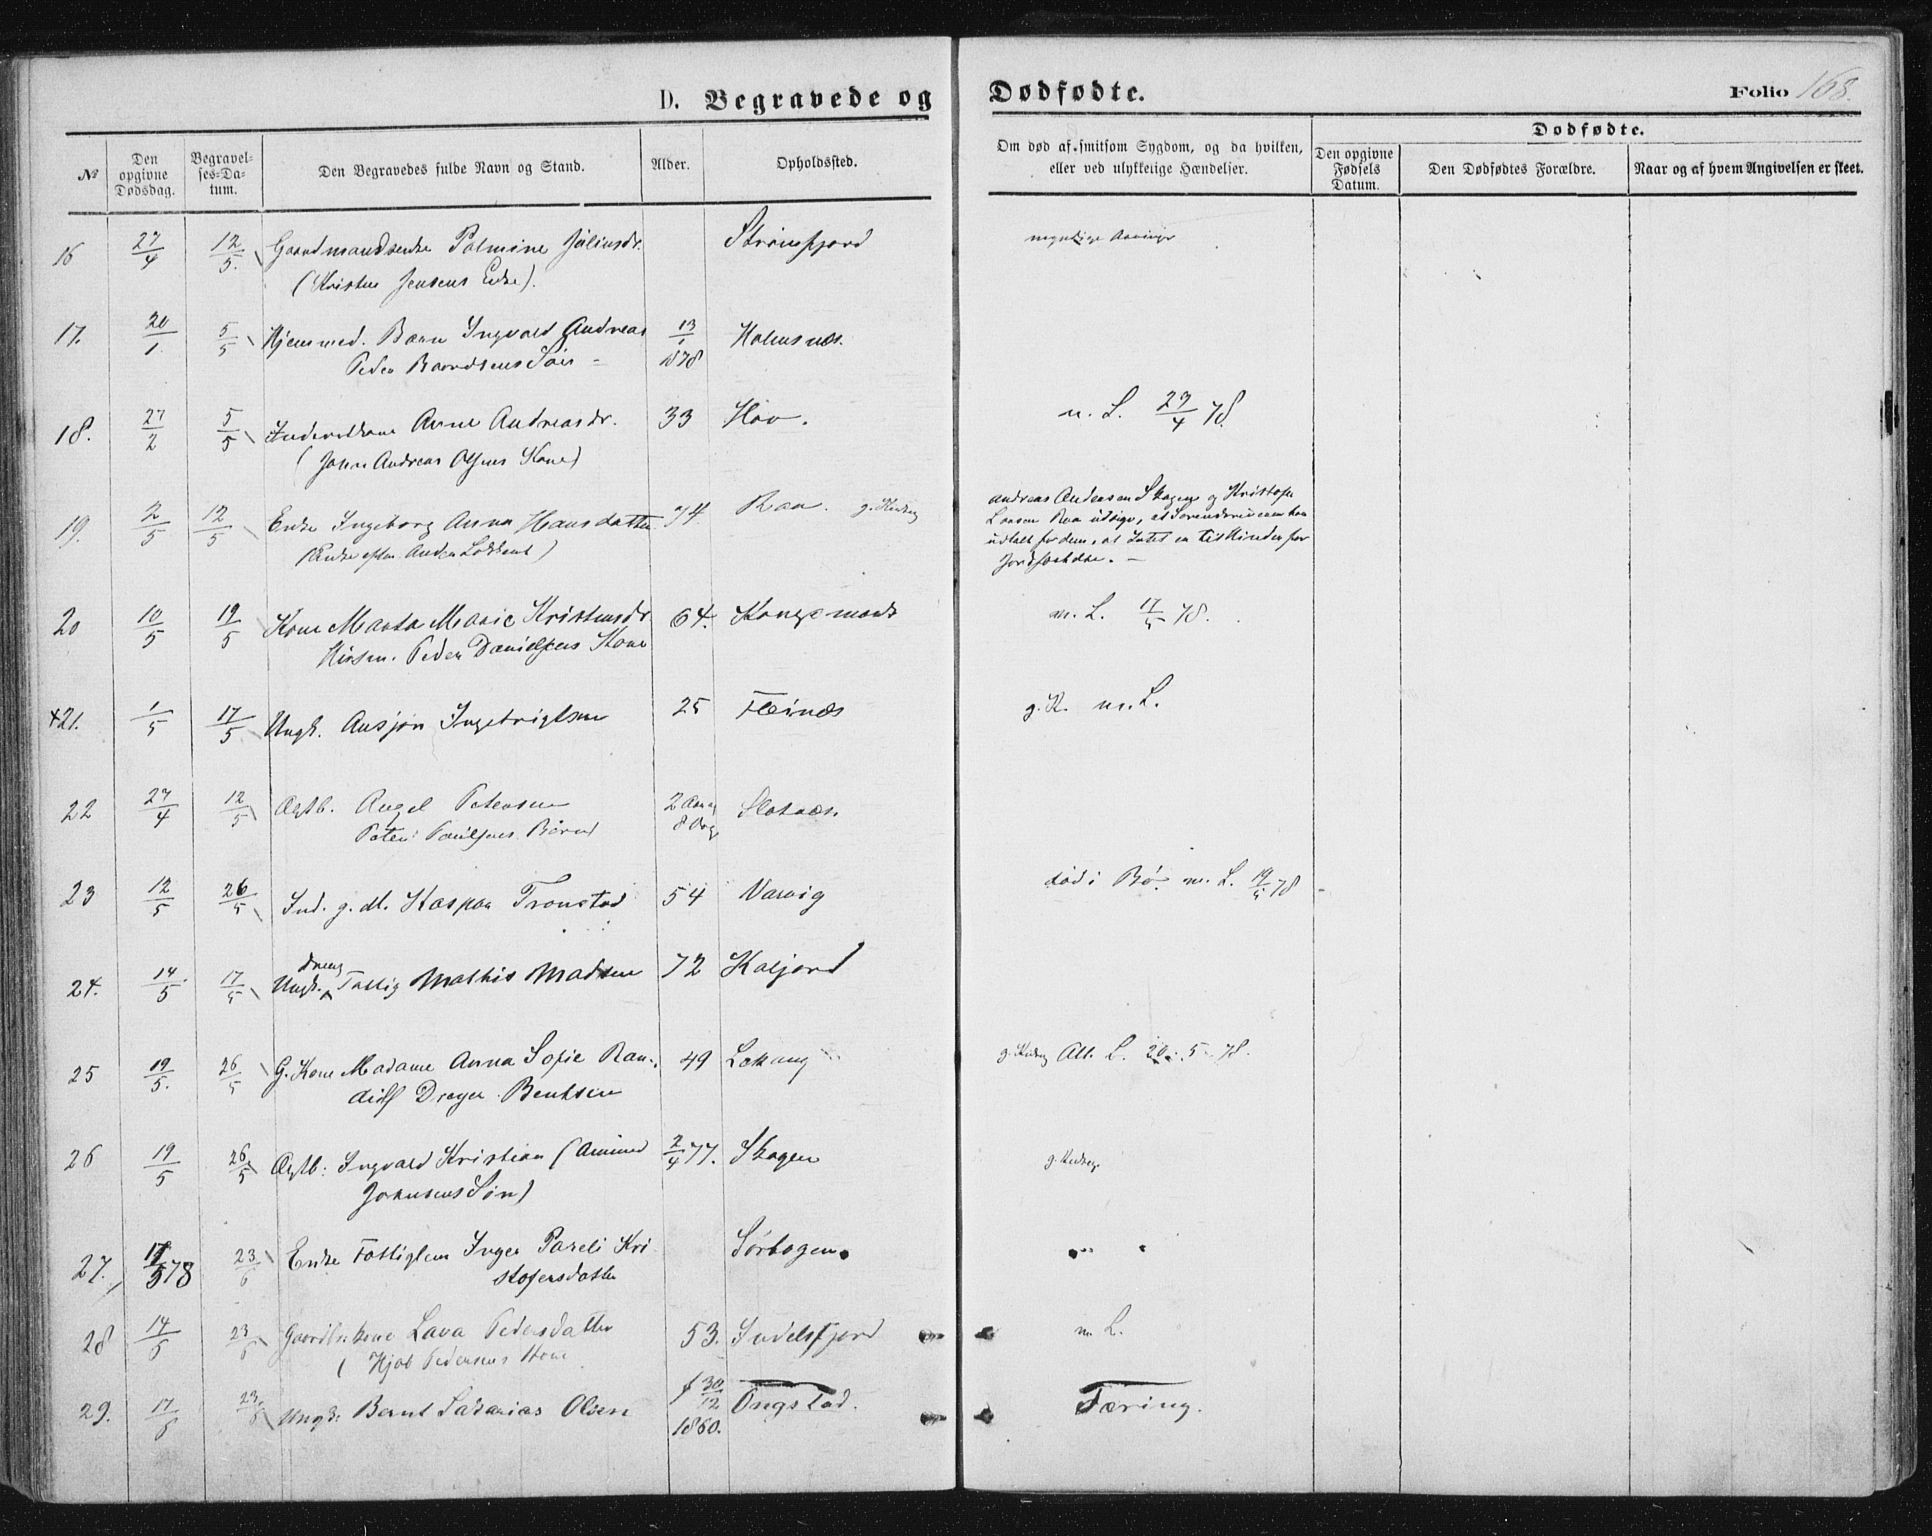 D. Begravede og Dødfødte.
Folio 168.
№
Den opgivne Dødsdag.
Begravel-
ses-Da-
tum.
Den Begravedes fulde Navn og Stand.
Alder.
Opholdssted.
Om død af smitsom Sygdom, og da hvilken,
eller ved ulykkelige Hændelser.
Dødfødte.
Den opgivne
Fødsels
Datum.
Den Dødfødtes Forældre.
Naar og af hvem Angivelsen er skeet.
16 27/4 12/5 Gaardmandsenke Palmine Juliusdr. Strømfjord
(Kristen Jensens Enke).
17. 20/1 5/5 Hjemmed. Barn Ingvald Andreas 13/1 1878 Holmsnæs.
Peder Baardsens Søn
18. 27/2 5/5 Anne Andreasdr. 33 Hov. m. L. 23/4 78.
(Johan Andreas Olsens Kone)
19. 2/5 12/5 Enke Ingeborg Anna Hansdatter 74. Raa.
(Enke efter Anders )
Andreas Andersen Skagen og Kristofer
Larsen Raa udsige, at
udtalt for dem, at Intet er til Hinder for
Jordfæstelse. —
20 10/5 19/5 Kone Marta Marie Kristensdr. 64. Kongsmark m. L. 17/5 78.
Peder Danielsens Kone
+21. 1/5 17/5 Ungk. Ansjøn Ingebrigtsen 25 Fleinæs g. K. m. L.
22 27/4 12/5 Ægtb. Angel Petersen 2 Aar 8 Dag Slotnæs.
Peter Paulsens Barn
23 12/5 26/5 Ind. g. M. Kaspar Tronstad 54 Varvig død i Bø. m. L. 19/5 78
24. 14/5 17/5 Ungk. dreng Fattig Mathis Madsen 72 Kaljord
25 19/5. 26/5 G. Kone Madame Anna Sofie Ran- 49 Lekang Att. L. 20-5-78.
dulf Dreyer Bentsen
26 19/5 26/5 Ægtb. Ingvald Kristian (Amund 2/4 77. Skagen
Johnsens Søn)
27. 17/5 78 23/6 Enke Fattiglem Inger Pareli Kri- Sørbogen.
stofersdatter
28 14/5 23/6 Gaardbr.kone Lava Pedersdatter 53. Indelsfjord m. L.
( Hjab Pedersens Kone
29. 17/6 23/6 Ungk. Bernt Sakarias Olsen f 30/12 1860. Ongstad. Tæring.